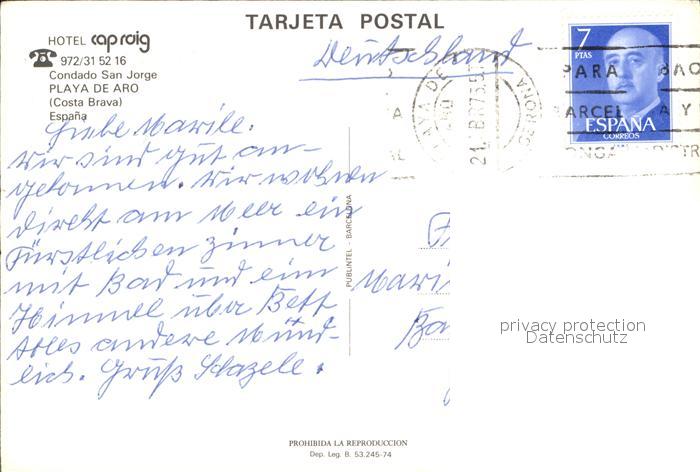 TARJETA POSTAL
HOTEL cap roig
972/31 52 16
Condado San Jorge
PLAYA DE ARO
(Costa Brava)
España
Deutschland
7
PTAS
ESPAÑA
CORREOS
PARA
BARCEL
A Y
PLAYA DE
21
GERONA
Liebe Marile.
Wir sind gut an-
gekommen. Wir wohnen
direkt am Meer ein
Fürstlichen Zimmer
mit Bad und ein
Himmel über Bett
Alles andere Münd-
lich. Gruß
PUBLINTEL - BARCELONA
Mari
Ba
privacy protection
Datenschutz
PROHIBIDA LA REPRODUCCION
Dep. Leg. B. 53.245-74